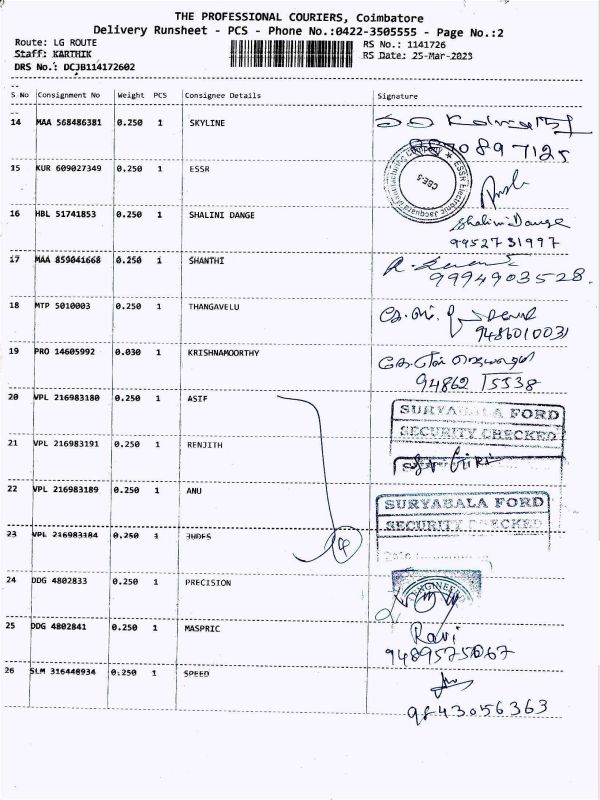 THE PROFESSIONAL COURIERS, Coimbatore
Delivery Runsheet - PCS - Phone No.:0422-3505555 - Page No.:2
Route: LG ROUTE RS No.: 1141726
Staff: KARTHIK RS Date: 25-Mar-2023
DRS No.: DCJB114172602
S No Consignment No Weight PCS Consignee Details Signature
14 MAA 568486381 0.250 1 SKYLINE
70897125
15 KUR 609027349 0.250 1 ESSR
ESSR Electronic Jacquard Manufacturing CBE-5
16 HBL 51741853 0.250 1 SHALINI DANGE Shalini Dange
9952731997
17 MAA 859041668 0.250 1 SHANTHI
9994903528.
18 MTP 5010003 0.250 1 THANGAVELU
9486010031
19 PRO 14605992 0.030 1 KRISHNAMOORTHY
94862 15538
20 VPL 216983180 0.250 1 ASIF
SURYABALA FORD
SECURITY CHECKED
21 VPL 216983191 0.250 1 RENJITH
22 VPL 216983189 0.250 1 ANU
SURYABALA FORD
SECURITY CHECKED
23 VPL 216983184 0.250 1 JUDES 4
24 DDG 4802833 0.250 1 PRECISION
25 DDG 4802841 0.250 1 MASPRIC Ravi
26 SLM 316448934 0.250 1 SPEED
9843056363